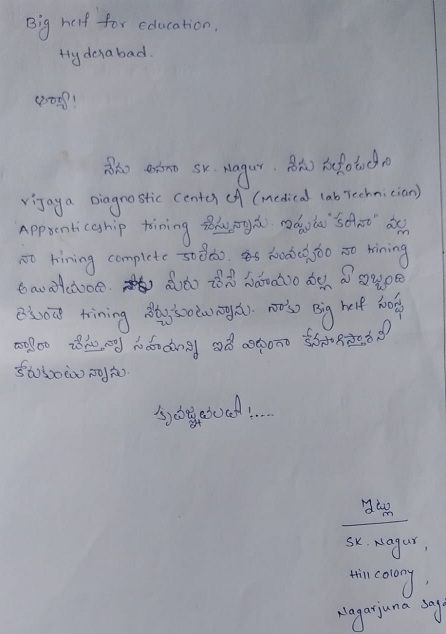 Big helf for education,
Hyderabad.
ఆర్యా!
నేను అనగా SK. Nagur. నేను నల్గొండలోని
Vijaya Diagnostic Center లో (Medical lab Technician)
Apprenticeship trining చేస్తున్నాను. ఇప్పుడు "కరోనా" వల్ల
నా trining complete కాలేదు. ఈ సంవత్సరం నా trining
అయిపోయింది. మీరు చేసే సహాయం వల్ల ఏ ఇబ్బంది
లేకుండా trining నేర్చుకుంటున్నాను. నాకు Big helf సంస్థ
ద్వారా చేస్తున్న సహాయాన్ని ఇదే విధంగా కొనసాగిస్తారని
కోరుకుంటున్నాను.
కృతజ్ఞతలతో!....
ఇట్లు
SK. Nagur,
Hill colony,
Nagarjuna